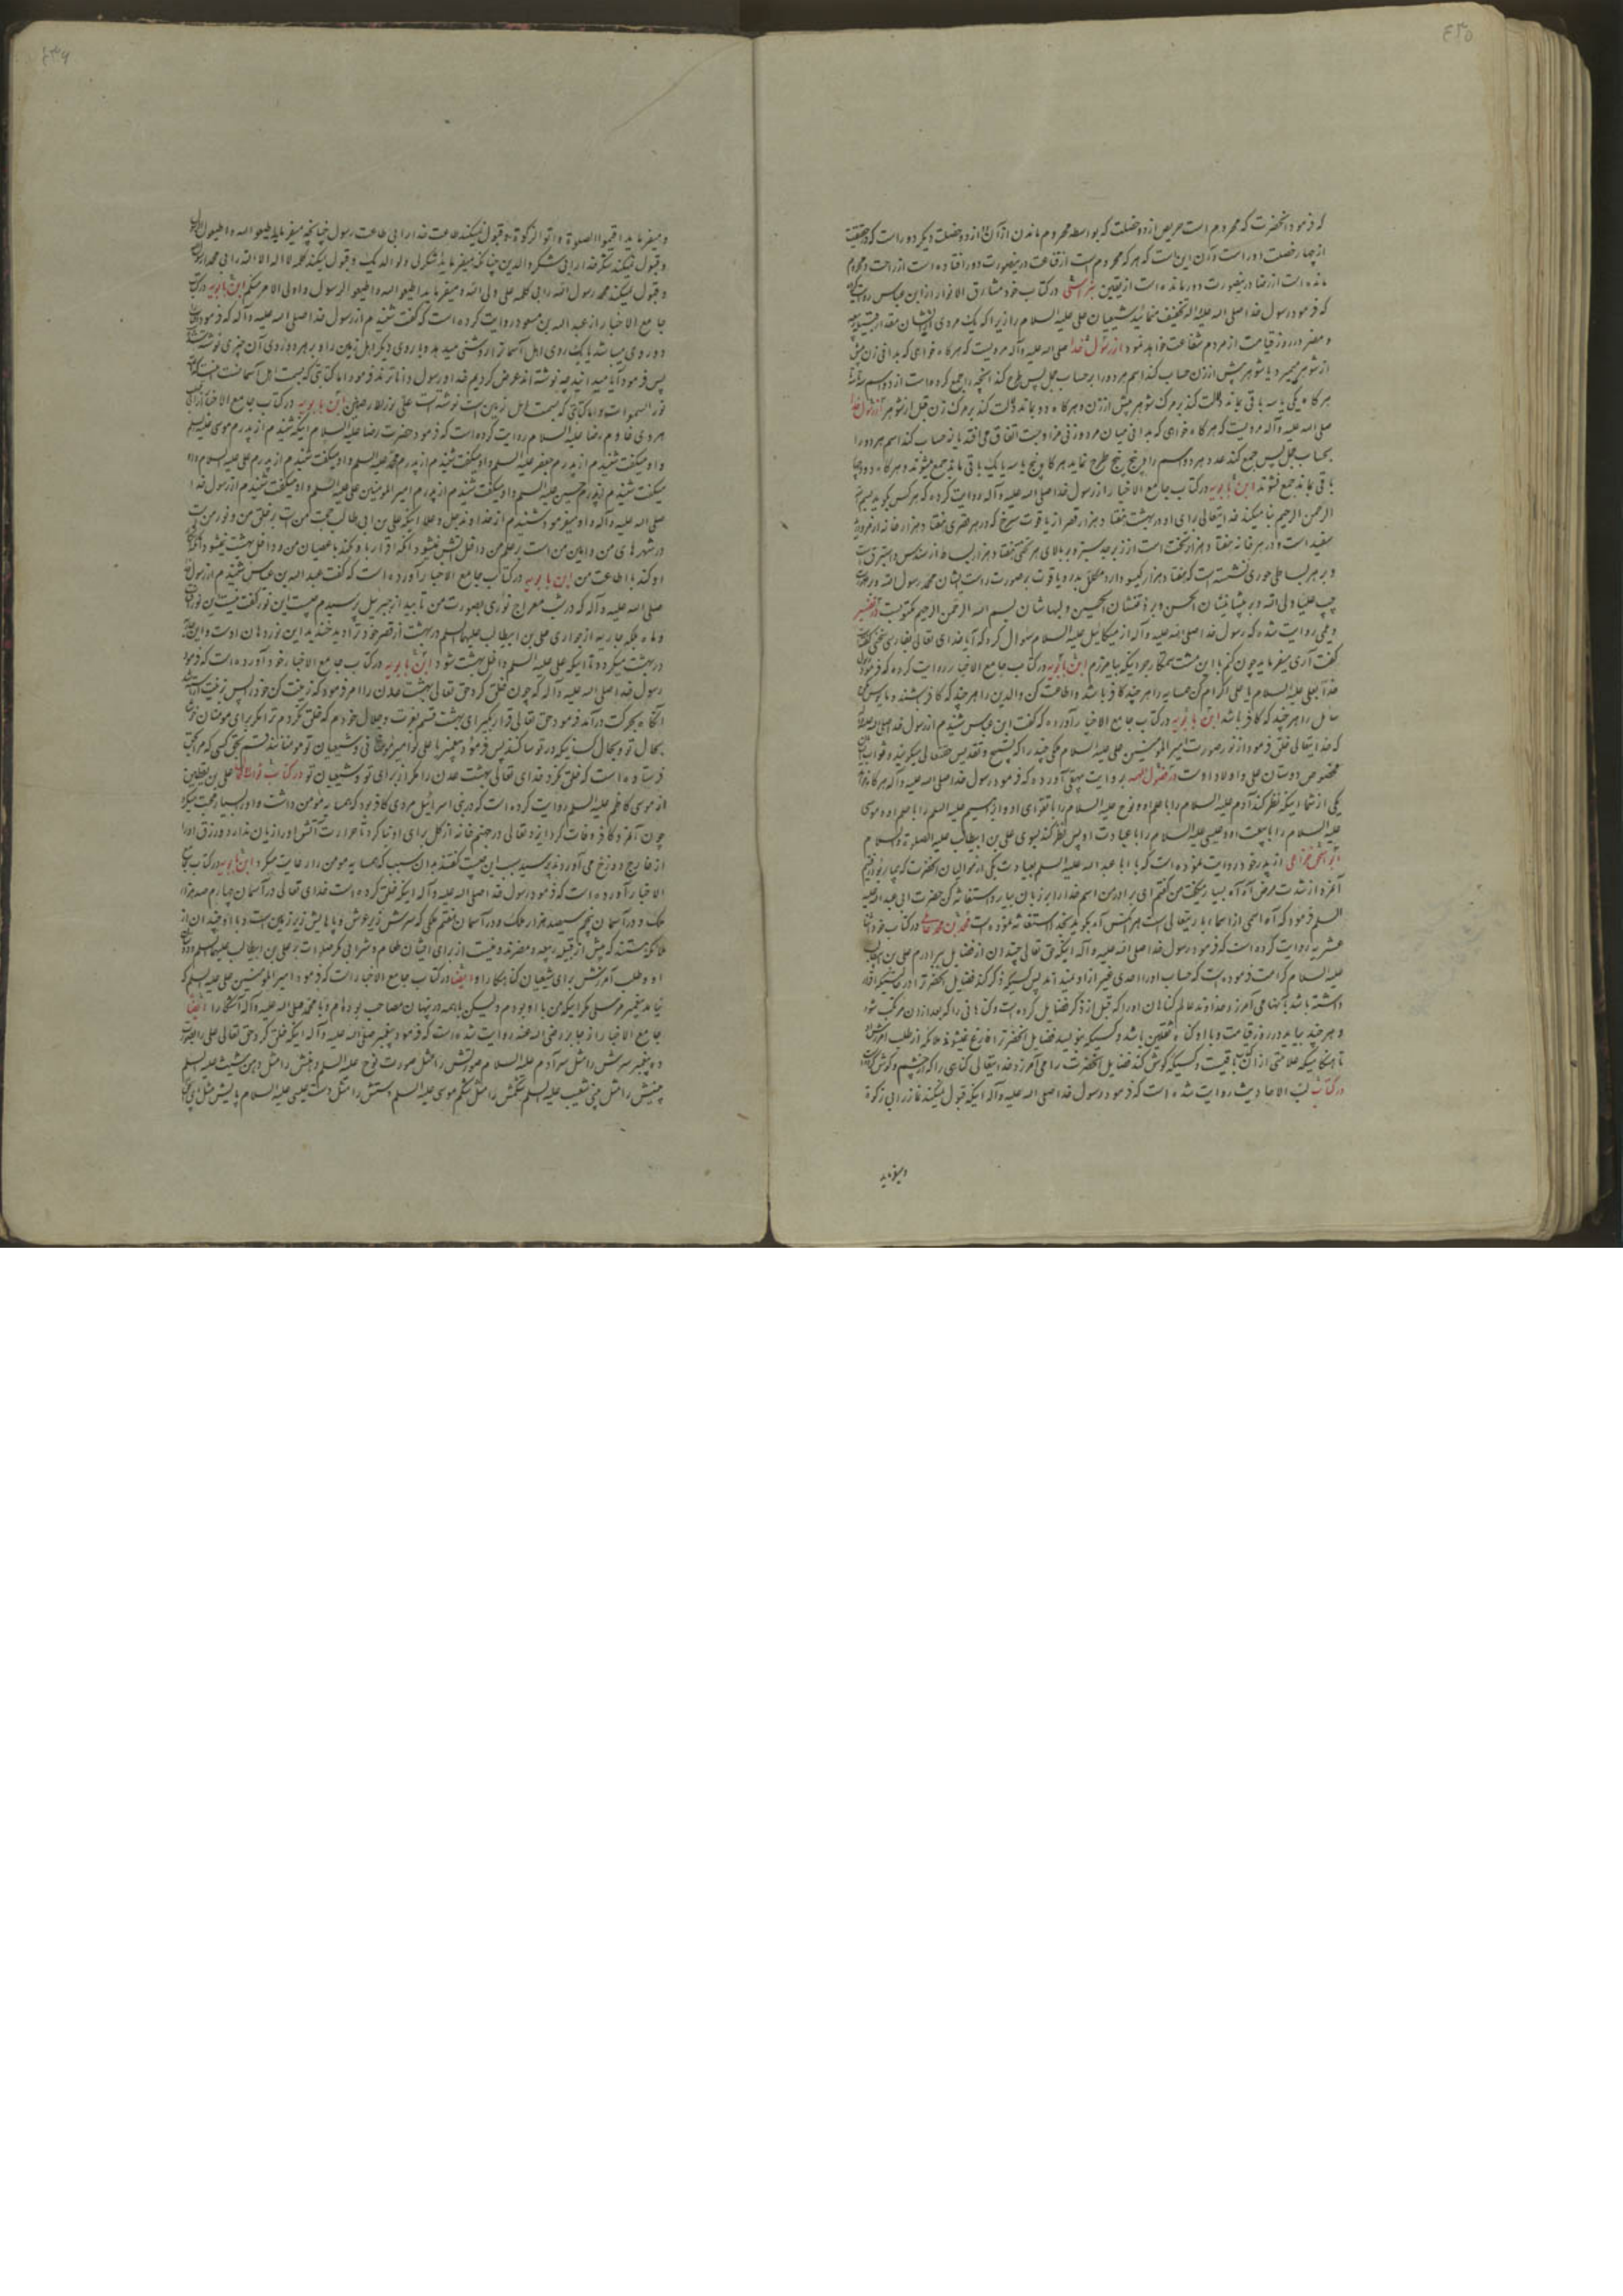 ٤٣٥
که فرمود آنحضرت که محروم است حریص از دو خصلت که بواسطه محروم ماندن از آن از دو خصلت دیگر دور است که در حقیقت
از چهار خصلت دور است و آن این است که هر که محروم است از قناعت در اینصورت دور افتاده است از راحت و محروم
مانده است از رضا در اینصورت دور مانده است از یقین در کتاب خود مشارق الانوار از ابن عباس روایت
که فرمود رسول خدا صلی الله علیه و آله تخفیف منمائید شیعیان علی علیه السلام را زیرا که یک مردی از ایشان مقدار قبیله ربیعه
و مضر در روز قیامت از مردم شفاعت خواهد نمود از رسول خدا صلی الله علیه و آله مرویست که هرگاه خواهی که بدانی زن پیش
از شوهر میمیرد یا شوهر پیش از زن حساب کند اسم هر دو را بر حساب جمل پس طرح کند آنچه را جمع کرده است از دو اسم
هرگاه یکی یا سه باقی بماند دلالت کند بر مرگ شوهر پیش از زن و هرگاه دو بماند دلالت کند بر مرگ زن قبل از شوهر از رسول خدا
صلی الله علیه و آله مرویست که هرگاه خواهی که بدانی میان مرد و زنی مزاوجت اتفاق می افتد یا نه حساب کند اسم هر دو را
بحساب جمل پس جمع کند عدد هر دو اسم را و پنج پنج طرح نماید هرگاه پنج یا سه یا یک باقی ماند جمع میشوند و هرگاه دو و چهار
باقی بماند جمع نشوند ابن بابویه در کتاب جامع الاخبار از رسول خدا صلی الله علیه و آله روایت کرده که هر کس بگوید بسم الله
الرحمن الرحیم بنا میکند خدایتعالی برای او در بهشت هفتاد هزار قصر از یاقوت سرخ که در هر قصری هفتاد هزار خانه از مروارید
سفید است و در هر خانه هفتاد هزار تخت است از زبرجد سبز و بر بالای هر تختی هفتاد هزار بساط از سندس و استبرق است
و بر هر بساطی حوری نشسته است که هفتاد هزار گیسو دارد مکلل بدر و یاقوت بر صورت راست ایشان محمد رسول الله و بر صورت
چپ علی ولی الله و بر پیشانیشان الحسن و بر ذقنشان الحسین و لبهاشان بسم الله الرحمن الرحیم مکتوبست در تفسیر
روایت شده که رسول خدا صلی الله علیه و آله از میکائیل علیه السلام سؤال کرد که آیا خدای تعالی بفارسی سخن گفت
گفت آری میفرماید چون کنم با این مشت ستمکار جز اینکه بیامرزم ابن بابویه در کتاب جامع الاخبار روایت کرده که فرمود رسول
خدا بعلی علیه السلام یا علی اکرام کن همسایه را هر چند کافر باشد و اطاعت کن والدین را هر چند که کافر باشند و مایوس مکن
سائل را هر چند که کافر باشد ابن بابویه در کتاب جامع الاخبار آورده که گفت ابن عباس شنیدم از رسول خدا صلی الله علیه
که خدایتعالی خلق فرمود از نور صورت امیرالمؤمنین علی علیه السلام ملکی چند را که تسبیح و تقدیس حقتعالی میگویند و ثواب آن
مخصوص دوستان علی و اولاد اوست در فصول المهمه بروایت بیهقی آورده که فرمود رسول خدا صلی الله علیه و آله هرگاه خواهد
یکی از شما اینکه نظر کند آدم علیه السلام را با علم او و نوح علیه السلام را با تقوای او و ابراهیم علیه السلام را با حلم او و موسی
علیه السلام را با هیبت او و عیسی علیه السلام را با عبادت او پس نظر کند بسوی علی بن ابیطالب علیه الصلوة والسلام
از پدر خود روایت نموده است که با ابا عبد الله علیه السلم بعیادت یکی از موالیان آنحضرت که بیمار بود رفتیم
آنمرد از شدت مرض آه آه بسیار میگفت من گفتم ای برادر من اسم خدا را بر زبان بیار و استغاثه کن حضرت ابی عبد الله علیه
السلم فرمود که آه اسمی از اسماء باریتعالی است هر کس آه بگوید بخدا استغاثه نموده است در کتاب خود
عشریه روایت کرده است که فرمود رسول خدا صلی الله علیه و آله اینکه حق تعالی چندان از فضایل برادرم علی بن ابیطالب
علیه السلام کرامت فرموده است که حساب او را احدی غیر از او نمیداند پس کسیکه ذکر کند فضایل آنحضرت را در حالتیکه اقرار
داشته باشد بآنها می آمرزد خداوند عالم گناهان او را که قبل از ذکر فضایل کرده است و گناهانی را که بعد از آن مرتکب شود
و هر چند بیاید در روز قیامت و با او گناه ثقلین باشد و کسیکه بنویسد فضایل آنحضرت را فارغ نمیشوند ملائکه از طلب آمرزش او
تا هنگامیکه علامتی از آن باقیست و کسیکه گوش کند فضایل آنحضرت را می آمرزد خدایتعالی گناهی را که از چشم و گوش
در کتاب لب الاحادیث روایت شده است که فرمود رسول خدا صلی الله علیه و آله اینکه قبول نمیکند نماز را بی زکوة
و میفرماید
٤٣٦
و میفرماید اقیموا الصلوة و اتوا الزکوة و قبول نمیکند طاعت خدا را بی طاعت رسول چنانچه میفرماید اطیعوا الله و اطیعوا الرسول
و قبول نمیکند شکر خدا را بی شکر والدین چنانکه میفرماید اشکر لی و لوالدیک و قبول نمیکند کلمه لا اله الا الله را بی محمد رسول الله
و قبول نمیکند محمد رسول الله را بی کلمه علی ولی الله و میفرماید اطیعوا الله و اطیعوا الرسول و اولی الامر منکم ابن بابویه در کتاب
جامع الاخبار از عبد الله بن مسعود روایت کرده است که گفت شنیدم از رسول خدا صلی الله علیه و آله که فرمود
دو روی میباشد با یک روی اهل آسمان را روشنی میدهد و با روی دیگر اهل زمین را و بر هر دو روی آن چیزی نوشته شده
پس فرمود آیا میدانید چه نوشته اند عرض کردیم خدا و رسول داناترند فرمود اما کتابتی که بسمت اهل آسمانست
نور السموات و اما کتابتی که بسمت اهل زمین است نوشته است علی نور الارضین ابن بابویه در کتاب جامع الاخبار از
هروی خادم رضا علیه السلام روایت کرده است که فرمود حضرت رضا علیه السلام اینکه شنیدم از پدرم موسی علیه السلم
و او میگفت شنیدم از پدرم جعفر علیه السلم و او میگفت شنیدم از پدرم محمد علیه السلم و او میگفت شنیدم از پدرم علی علیه السلام و او
میگفت شنیدم از پدرم حسین علیه السلم و او میگفت شنیدم از پدرم امیر المومنین علی علیه السلم و او میگفت شنیدم از رسول خدا
صلی الله علیه و آله و او میفرمود شنیدم از خداوند جل و علا اینکه علی بن ابی طالب حجت من است بر خلق من و نور من است
در شهرهای من و امین من است بر علم من داخل آتش نمیشود آنکه اقرار باو کند با عصیان من و داخل بهشت نمیشود آنکه انکار
او کند با اطاعت من ابن بابویه در کتاب جامع الاخبار آورده است که گفت عبد الله بن عباس شنیدم از رسول
صلی الله علیه و آله که در شب معراج نوری بصورت من تابید از جبرییل پرسیدم چیست این نور گفت نیست این نور آفتاب
و ماه بلکه جاریه از جواری علی بن ابیطالب علیهما السلم در بهشت از قصر خود ترا دید خندید این نور دهان اوست و این جاریه
در بهشت میگردد تا اینکه علی علیه السلم داخل بهشت شود ابن بابویه در کتاب جامع الاخبار خود آورده است که فرمود
رسول خدا صلی الله علیه و آله که چون خلق کرد حق تعالی بهشت عدن را امر فرمود که زینت کن خود را پس زینت
آنگاه بحرکت درآمد فرمود حق تعالی قرار بگیر ای بهشت قسم بعزت و جلال خودم که خلق نکردم ترا مگر برای مومنان خوشا
بحال تو و بحال کسانیکه در تو ساکنند پس فرمود پیغمبر یا علی تو امیر مومنانی و شیعیان تو مومنانند قسم بحق کسی که مرا بحق
فرستاده است که خلق نکرد خدای تعالی بهشت عدن را مگر از برای تو و شیعیان تو در کتاب علی بن یقطین
از موسی کاظم علیه السلم روایت کرده است که در بنی اسرائیل مردی کافر بود که همسایه مؤمن داشت و او را بسیار محبت میکرد
چون آنمرد کافر وفات کرد ایزد تعالی در جهنم خانه از گل برای او بنا کرد تا حرارت آتش او را زیان ندارد و رزق او را
از خارج دوزخ می آوردند پرسید سبب این چیست گفتند بدان سبب که همسایه مومن را رعایت میکرد ابن بابویه در کتاب جامع
الاخبار آورده است که فرمود رسول خدا صلی الله علیه و آله اینکه خلق کرده است خدای تعالی در آسمان چهارم صد هزار
ملک و در آسمان پنجم سیصد هزار ملک و در آسمان هفتم ملکی که سرش زیر عرش و پاهایش زیر زمین است و با او چندان از
ملائکه هستند که بیش از قبیله ربیعه و مضرند و نیست از برای ایشان طعام و شرابی مگر صلوات بر علی بن ابیطالب علیهما السلم و دوستان
او و طلب آمرزش برای شیعیان گناهکار او و ایضا در کتاب جامع الاخبار است که فرمود امیر المومنین علی علیه السلم که
نیامد پیغمبر مرسلی مگر اینکه من با او بودم و لیکن با همه در پنهان مصاحب بوده ام و با محمد صلی الله علیه و آله آشکارا ایضا
جامع الاخبار از جابر رضی الله عنه روایت شده است که فرمود پیغمبر صلی الله علیه و آله اینکه خلق کرد حق تعالی علی را بصورت
ده پیغمبر سرش را مثل سر آدم علیه السلام صورتش را مثل صورت نوح علیه السلم دهنش را مثل دهن شیث علیه السلم
بینیش را مثل بینی شعیب علیه السلم شکمش را مثل شکم موسی علیه السلم دستش را مثل دست عیسی علیه السلام پایش مثل پای